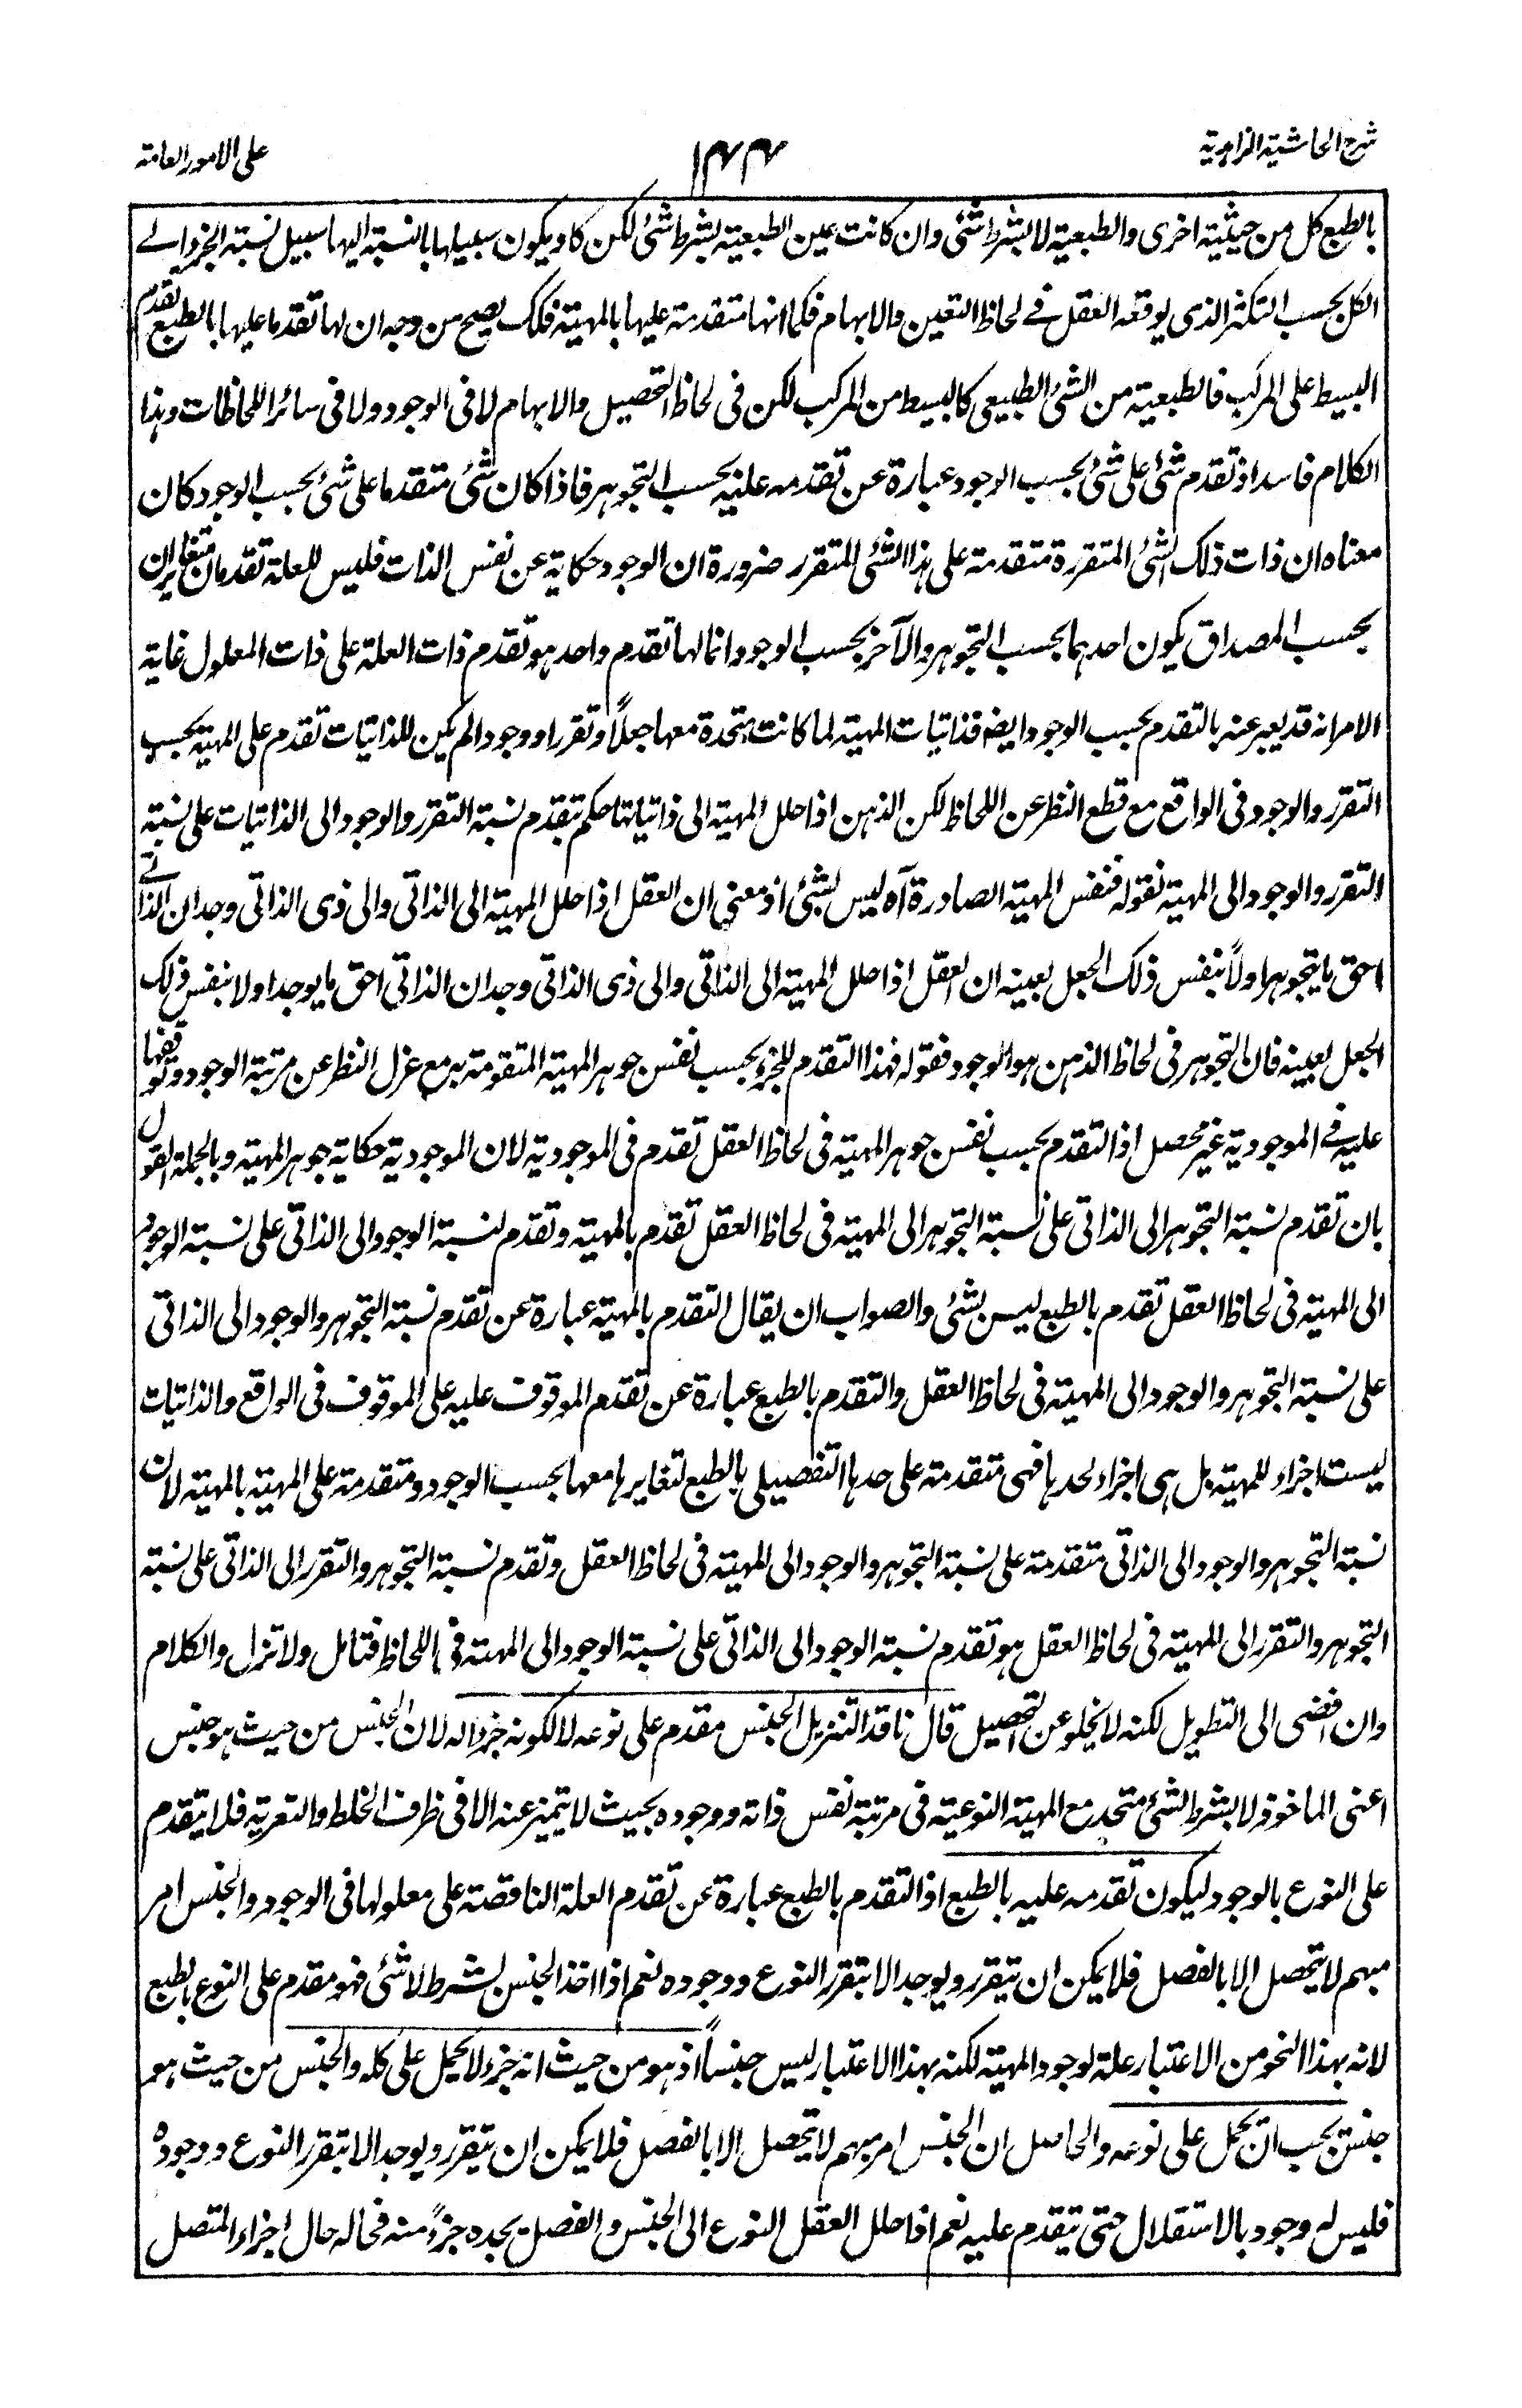 شرح الحاشية الزاهدية
۱۴۴
على الامور العامة
بالطبع كل من حيثية اخرى والطبعية لا بشرط شئ وان كانت عين الطبعية بشرط شئ لكن كاد يكون سبيلها بالنسبة اليها سبيل نسبة الجزء الے
الكل بحسب التكثر الذى يوقعه العقل فے لحاظ التعين والابهام فكما انها متقدمة عليها بالمهية فكك يصح من وجه ان لها تقدما عليها بالطبع تقدم
البسيط على المركب فالطبعية من الشئ الطبيعى كالبسيط من المركب لكن فى لحاظ التحصيل والابهام لا فى الوجود ولا فى سائر اللحاظات وہذا
الكلام فاسد اذ تقدم شئ على شئ بحسب الوجود عبارة عن تقدمه عليه بحسب التجوہر فاذا كان شئ متقدما على شئ بحسب الوجود كان
معناه ان ذات ذلك الشئ المتقررة متقدمة على ہذا الشئ المتقرر ضرورة ان الوجود حكاية عن نفس الذات فليس للعلة تقدمان متغايران
بحسب المصداق يكون احدہما بحسب التجوہر والآخر بحسب الوجود وانما لها تقدم واحد ہو تقدم ذات العلة على ذات المعلول غاية
الامر انه قد يعبر عنه بالتقدم بحسب الوجود ايضہ فذاتيات المهية لما كانت متحدة معها جعلاً وتقررا ووجودا لم يكن للذاتيات تقدم على المهية بحسب
التقرر والوجود فى الواقع مع قطع النظر عن اللحاظ لكن الذہن اذا حلل المهية الى ذاتياتها حكم بتقدم نسبة التقرر والوجود الى الذاتيات على نسبة
التقرر والوجود الى المهية فقوله فنفس المهية الصادرة آه ليس بشئ اذ معنى ان العقل اذا حلل المهية الى الذاتى والى ذى الذاتى وجد ان الذاتے
احق بالتجوہر اولاً بنفس ذلك الجعل بعينه ان العقل اذا حلل المهية الى الذاتى والى ذى الذاتى وجد ان الذاتى احق بالوجود اولا بنفس ذلك
الجعل بعينه فان التجوہر فى لحاظ الذہن ہو الوجود فقوله فهذا التقدم للجزء بحسب نفس جوہر المهية المتقومة به مع عزل النظر عن مرتبة الوجود وتوقفها
عليه فے الموجودية غير محصل اذ التقدم بحسب نفس جوہر المهية فى لحاظ العقل تقدم فى الموجودية لان الموجودية حكاية جوہر المهية وبالجملة القول
بان تقدم نسبة التجوہر الى الذاتى على نسبة التجوہر الى المهية فى لحاظ العقل تقدم بالمهية وتقدم نسبة الوجود الى الذاتى على نسبة الوجود
الى المهية فى لحاظ العقل تقدم بالطبع ليس بشئ والصواب ان يقال التقدم بالمهية عبارة عن تقدم نسبة التجوہر والوجود الى الذاتى
على نسبة التجوہر والوجود الى المهية فى لحاظ العقل والتقدم بالطبع عبارة عن تقدم الموقوف عليه على الموقوف فى الواقع والذاتيات
ليست اجزاء للمهية بل ہى اجزاء لحدہا فهى متقدمة على حدہا التفصيلى بالطبع لتغايرہا معها بحسب الوجود ومتقدمة على المهية بالمهية لان
نسبة التجوہر والوجود الى الذاتى متقدمة على نسبة التجوہر والوجود الى المهية فى لحاظ العقل وتقدم نسبة التجوہر والتقرر الى الذاتى على نسبة
التجوہر والتقرر الى المهية فى لحاظ العقل ہو تقدم نسبة الوجود الى الذاتى على نسبة الوجود الى المهية فى اللحاظ فتامل ولا تزل والكلام
وان افضى الى التطويل لكنه لا يخلو عن التحصيل قال ناقد التنزيل الجنس مقدم على نوعه لا لكونه جزء اله لان الجنس من حيث ہو جنس
اعنى الماخوذ لا بشرط الشئ متحد مع المهية النوعية فى مرتبة نفس ذاته ووجوده بحيث لا يتميز عنه الا فى ظرف الخلط والتعرية فلا يتقدم
على النوع بالوجود ليكون تقدمه عليه بالطبع اذ التقدم بالطبع عبارة عن تقدم العلة الناقصة على معلولها فى الوجود والجنس امر
مبهم لا يتحصل الا بالفصل فلا يمكن ان يتقرر ويوجد الا بتقرر النوع ووجوده نعم اذا اخذ الجنس بشرط لا شئ فهو مقدم على النوع بالطبع
لانه بهذا النحو من الاعتبار علة لوجود المهية لكنه بهذا الاعتبار ليس جنساً اذ ہو من حيث انه جزء لا يحمل على كله والجنس من حيث ہو
جنس يجب ان يحمل على نوعه والحاصل ان الجنس امر مبهم لا يتحصل الا بالفصل فلا يمكن ان يتقرر ويوجد الا بتقرر النوع ووجوده
فليس له وجود بالاستقلال حتى يتقدم عليه نعم اذا حلل العقل النوع الى الجنس والفصل يجده جزءً منه فحاله حال اجزاء المتصل